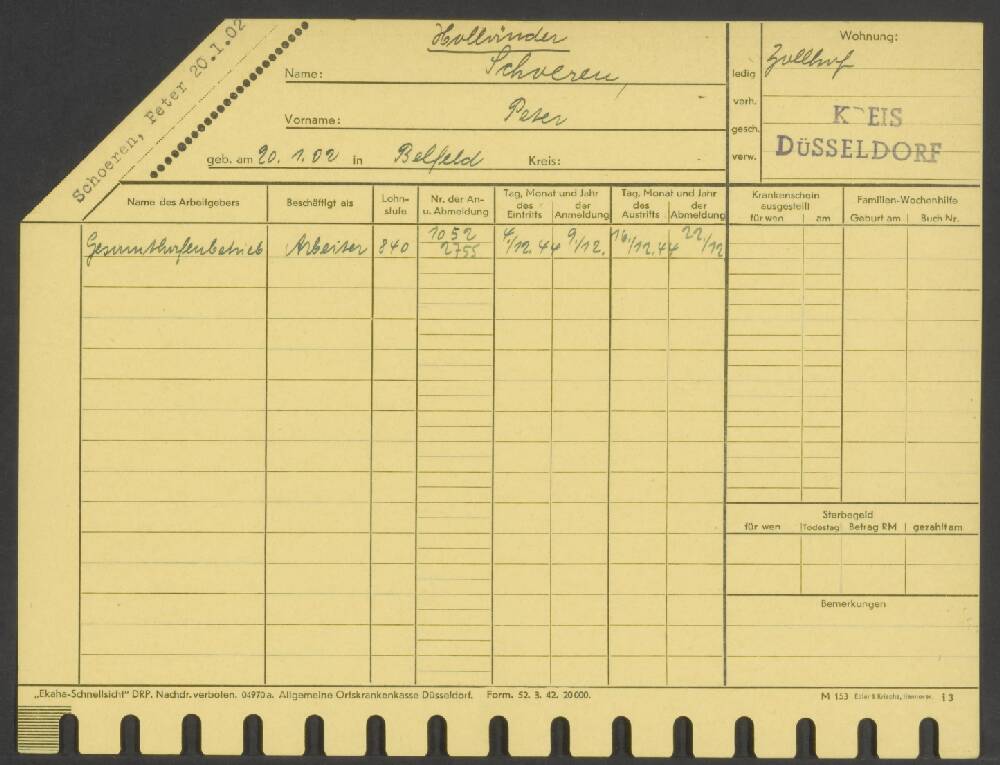 Schoeren, Peter 20.1.02
Holländer
Name: Schoeren,
Vorname: Peter
geb. am 20. 1. 02 in Belfeld Kreis:
ledig
verh.
gesch.
verw.
Wohnung:
Zollhof
KREIS
DÜSSELDORF
Name des Arbeitgebers
Beschäftigt als
Lohn-
stufe
Nr. der An-
u. Abmeldung
Tag, Monat und Jahr
des Eintritts der Anmeldung
Tag, Monat und Jahr
des Austritts der Abmeldung
Krankenschein
ausgestellt
für wen am
Familien-Wochenhilfe
Geburt am Buch Nr.
Gesamthafenbetrieb Arbeiter 840 1052 4/12.44 9/12. 16/12.44 22/12
2755
Sterbegeld
für wen Todestag Betrag RM gezahlt am
Bemerkungen
„Ekaha-Schnellsicht" DRP. Nachdr. verboten. 04970a. Allgemeine Ortskrankenkasse Düsseldorf. Form. 52. 3. 42. 20000.
M 153 Exler & Krische, Hannover. i 3